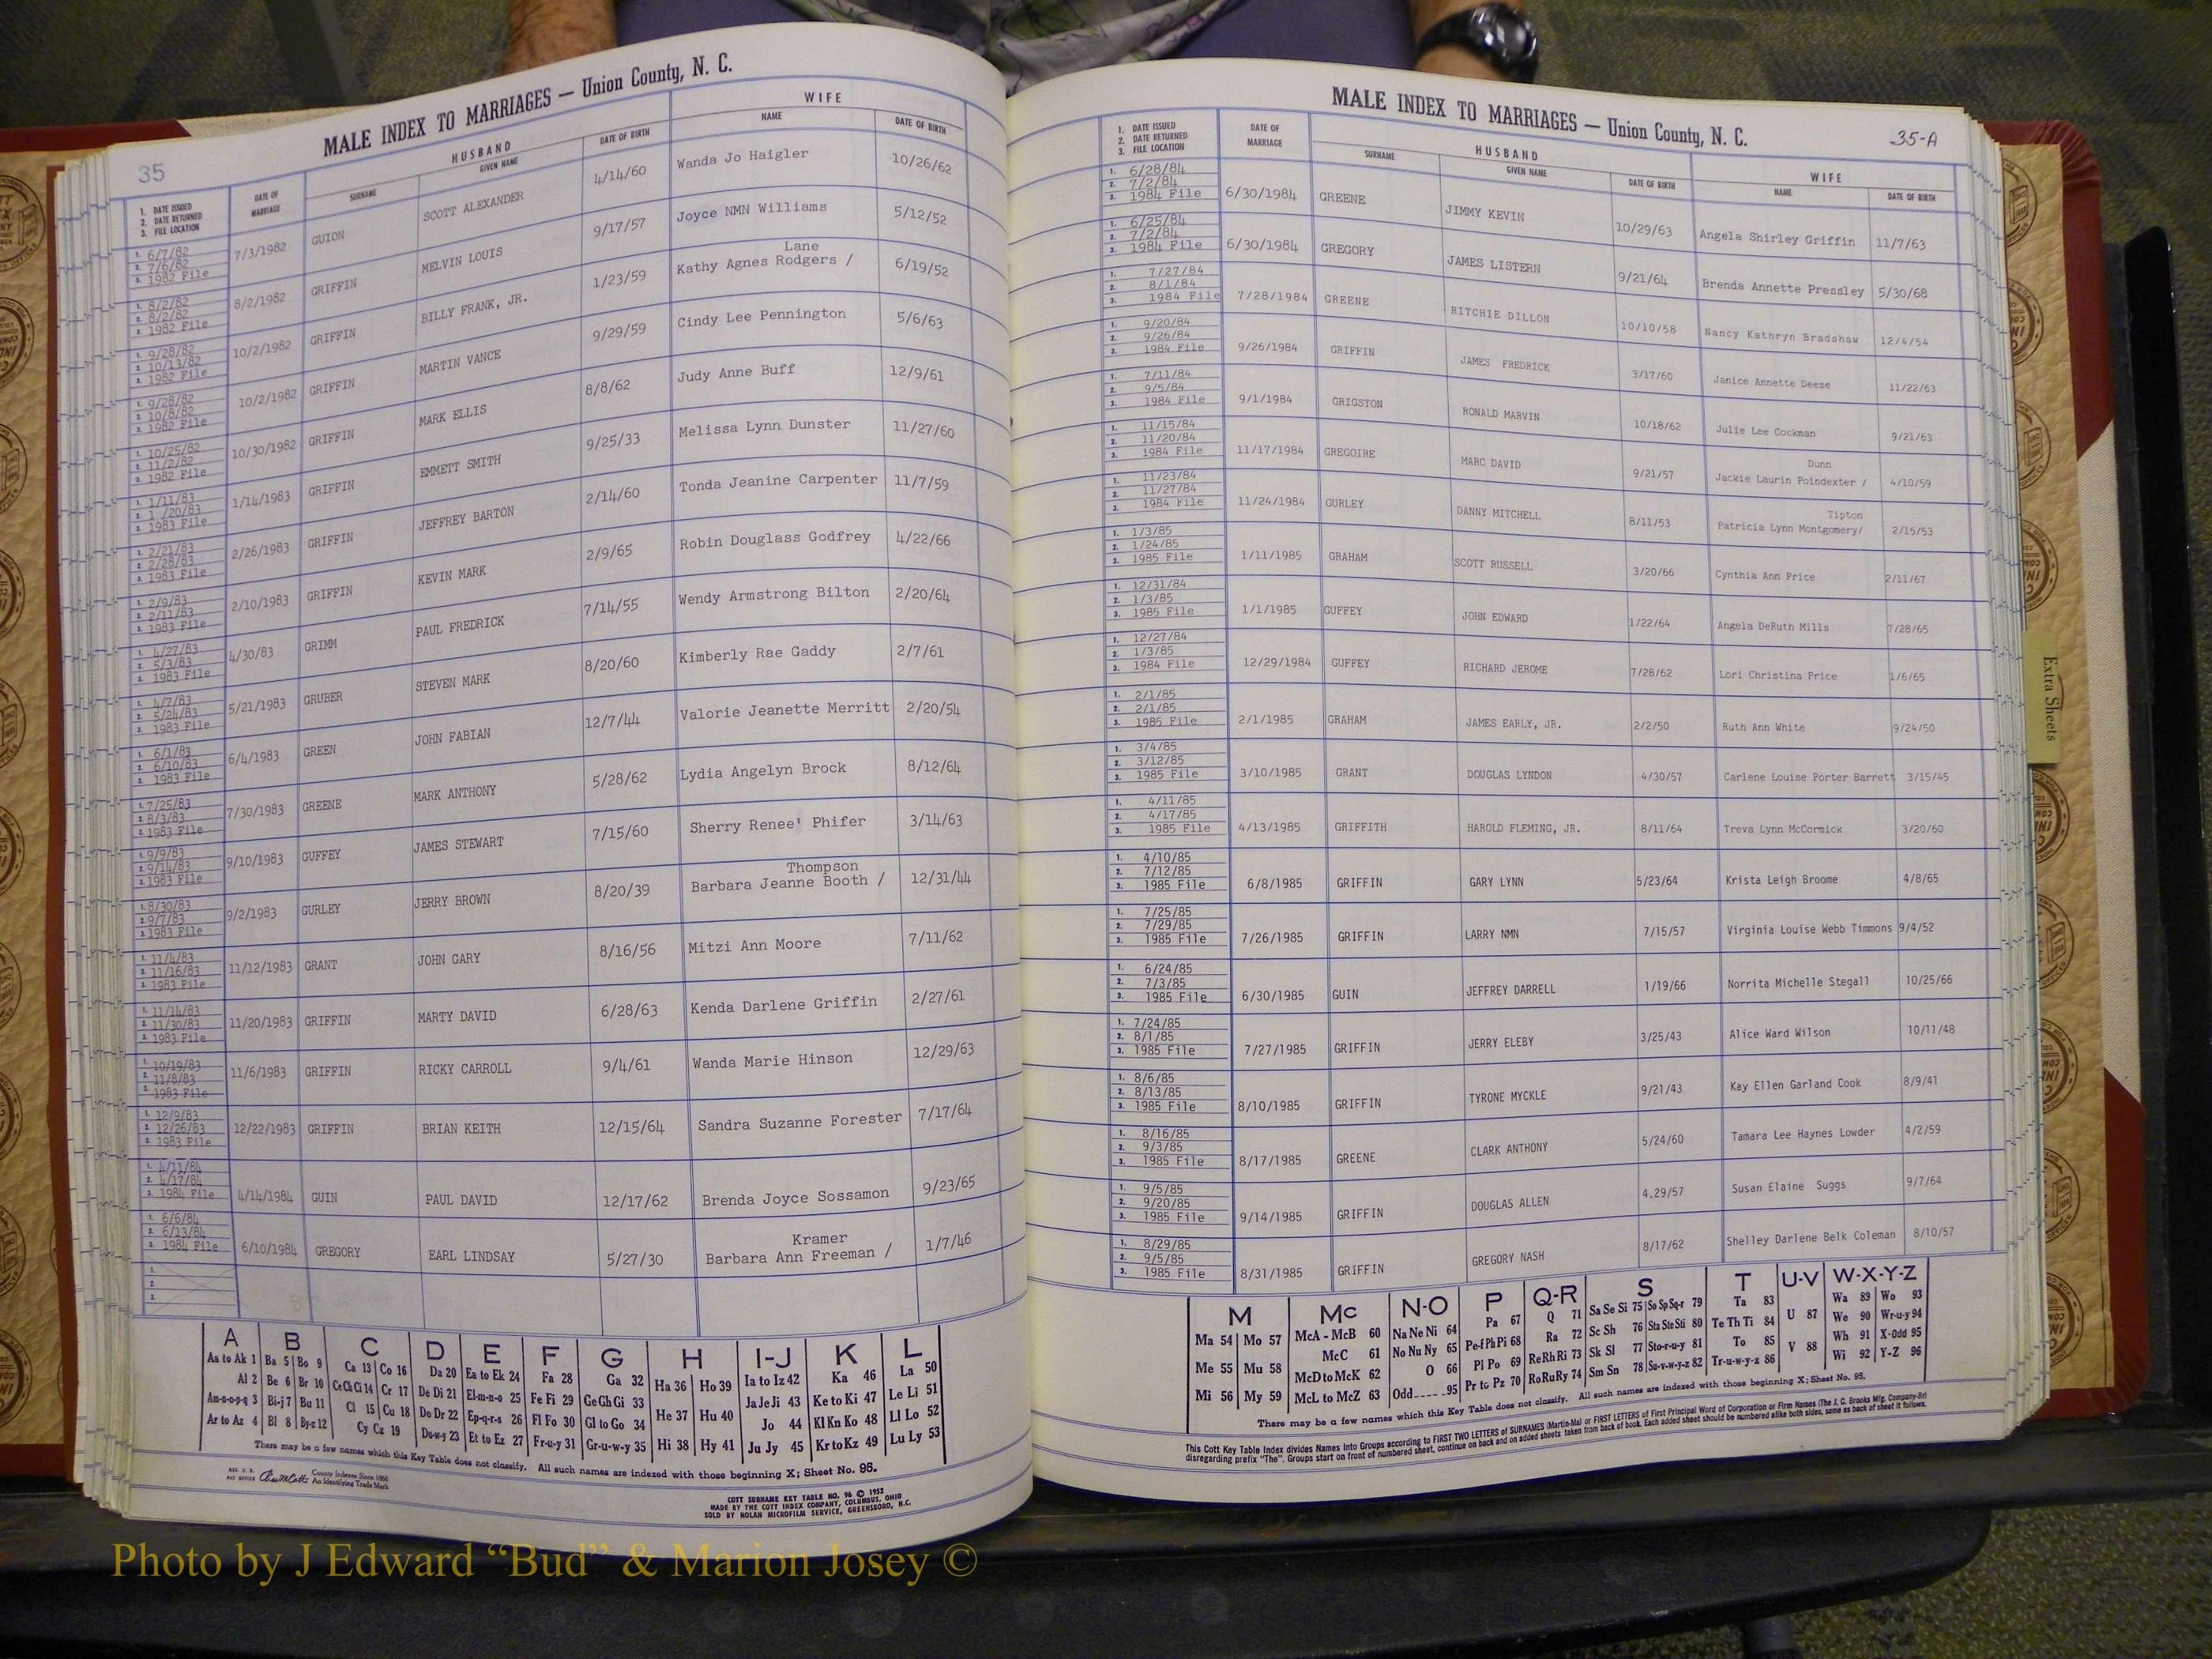 35
MALE INDEX TO MARRIAGES — Union County, N. C.
HUSBAND WIFE
1. DATE ISSUED 2. DATE RETURNED 3. FILE LOCATION DATE OF MARRIAGE SURNAME GIVEN NAME DATE OF BIRTH NAME DATE OF BIRTH
1. 6/7/82 2. 7/6/82 3. 1982 File 7/3/1982 GUION SCOTT ALEXANDER 4/14/60 Wanda Jo Haigler 10/26/62
1. 8/2/82 2. 8/2/82 3. 1982 File 8/2/1982 GRIFFIN MELVIN LOUIS 9/17/57 Joyce NMN Williams 5/12/52
1. 9/28/82 2. 10/13/82 3. 1982 File 10/2/1982 GRIFFIN BILLY FRANK, JR. 1/23/59 Kathy Agnes Rodgers / Lane 6/19/52
1. 9/28/82 2. 10/8/82 3. 1982 File 10/2/1982 GRIFFIN MARTIN VANCE 9/29/59 Cindy Lee Pennington 5/6/63
1. 10/25/82 2. 11/2/82 3. 1982 File 10/30/1982 GRIFFIN MARK ELLIS 8/8/62 Judy Anne Buff 12/9/61
1. 1/11/83 2. 1 /20/83 3. 1983 File 1/14/1983 GRIFFIN EMMETT SMITH 9/25/33 Melissa Lynn Dunster 11/27/60
1. 2/21/83 2. 2/28/83 3. 1983 File 2/26/1983 GRIFFIN JEFFREY BARTON 2/14/60 Tonda Jeanine Carpenter 11/7/59
1. 2/9/83 2. 2/11/83 3. 1983 File 2/10/1983 GRIFFIN KEVIN MARK 2/9/65 Robin Douglass Godfrey 4/22/66
1. 4/27/83 2. 5/3/83 3. 1983 File 4/30/83 GRIMM PAUL FREDRICK 7/14/55 Wendy Armstrong Bilton 2/20/64
1. 4/7/83 2. 5/24/83 3. 1983 File 5/21/1983 GRUBER STEVEN MARK 8/20/60 Kimberly Rae Gaddy 2/7/61
1. 6/1/83 2. 6/10/83 3. 1983 File 6/4/1983 GREEN JOHN FABIAN 12/7/44 Valorie Jeanette Merritt 2/20/54
1. 7/25/83 2. 8/3/83 3. 1983 File 7/30/1983 GREENE MARK ANTHONY 5/28/62 Lydia Angelyn Brock 8/12/64
1. 9/9/83 2. 9/14/83 3. 1983 File 9/10/1983 GUFFEY JAMES STEWART 7/15/60 Sherry Renee' Phifer 3/14/63
1. 8/30/83 2. 9/7/83 3. 1983 File 9/2/1983 GURLEY JERRY BROWN 8/20/39 Barbara Jeanne Booth / Thompson 12/31/44
1. 11/4/83 2. 11/16/83 3. 1983 File 11/12/1983 GRANT JOHN GARY 8/16/56 Mitzi Ann Moore 7/11/62
1. 11/14/83 2. 11/30/83 3. 1983 File 11/20/1983 GRIFFIN MARTY DAVID 6/28/63 Kenda Darlene Griffin 2/27/61
1. 10/19/83 2. 11/8/83 3. 1983 File 11/6/1983 GRIFFIN RICKY CARROLL 9/4/61 Wanda Marie Hinson 12/29/63
1. 12/9/83 2. 12/26/83 3. 1983 File 12/22/1983 GRIFFIN BRIAN KEITH 12/15/64 Sandra Suzanne Forester 7/17/64
1. 4/11/84 2. 4/17/84 3. 1984 File 4/14/1984 GUIN PAUL DAVID 12/17/62 Brenda Joyce Sossamon 9/23/65
1. 6/6/84 2. 6/13/84 3. 1984 File 6/10/1984 GREGORY EARL LINDSAY 5/27/30 Barbara Ann Freeman / Kramer 1/7/46
1. 2. 3.
A B C D E F G H I-J K L
Aa to Ak 1 Ba 5 Bo 9 Ca 13 Co 16 Da 20 Ea to Ek 24 Fa 28 Ga 32 Ha 36 Ho 39 Ia to Iz 42 Ka 46 La 50
Al 2 Be 6 Br 10 Ce Ch Ci 14 Cr 17 De Di 21 El-m-n-o 25 Fe Fi 29 Ge Gh Gi 33 Ja Je Ji 43 Ke to Ki 47 Le Li 51
Am-n-o-p-q 3 Bi-j 7 Bu 11 Cl 15 Cu 18 Do Dr 22 Ep-q-r-s 26 Fl Fo 30 Gl to Go 34 He 37 Hu 40 Jo 44 Kl Kn Ko 48 Ll Lo 52
Ar to Az 4 Bl 8 By-z 12 Cy Cz 19 Du-w-y 23 Et to Ez 27 Fr-u-y 31 Gr-u-w-y 35 Hi 38 Hy 41 Ju Jy 45 Kr to Kz 49 Lu Ly 53
There may be a few names which this Key Table does not classify. All such names are indexed with those beginning X; Sheet No. 95.
County Indexes Since 1888
An Identifying Trade Mark
COTT SURNAME KEY TABLE NO. 96 © 1952
MADE BY THE COTT INDEX COMPANY, COLUMBUS, OHIO
SOLD BY NOLAN MICROFILM SERVICE, GREENSBORO, N.C.
MALE INDEX TO MARRIAGES — Union County, N. C.
35-A
HUSBAND WIFE
1. DATE ISSUED 2. DATE RETURNED 3. FILE LOCATION DATE OF MARRIAGE SURNAME GIVEN NAME DATE OF BIRTH NAME DATE OF BIRTH
1. 6/28/84 2. 7/2/84 3. 1984 File 6/30/1984 GREENE JIMMY KEVIN 10/29/63 Angela Shirley Griffin 11/7/63
1. 6/25/84 2. 7/2/84 3. 1984 File 6/30/1984 GREGORY JAMES LISTERN 9/21/64 Brenda Annette Pressley 5/30/68
1. 7/27/84 2. 8/1/84 3. 1984 File 7/28/1984 GREENE RITCHIE DILLON 10/10/58 Nancy Kathryn Bradshaw 12/4/54
1. 9/20/84 2. 9/26/84 3. 1984 File 9/26/1984 GRIFFIN JAMES FREDRICK 3/17/60 Janice Annette Deese 11/22/63
1. 7/11/84 2. 9/5/84 3. 1984 File 9/1/1984 GRIGSTON RONALD MARVIN 10/18/62 Julie Lee Cockman 9/21/63
1. 11/15/84 2. 11/20/84 3. 1984 File 11/17/1984 GREGOIRE MARC DAVID 9/21/57 Jackie Laurin Poindexter / Dunn 4/10/59
1. 11/23/84 2. 11/27/84 3. 1984 File 11/24/1984 GURLEY DANNY MITCHELL 8/11/53 Patricia Lynn Montgomery/ Tipton 2/15/53
1. 1/3/85 2. 1/24/85 3. 1985 File 1/11/1985 GRAHAM SCOTT RUSSELL 3/20/66 Cynthia Ann Price 2/11/67
1. 12/31/84 2. 1/3/85 3. 1985 File 1/1/1985 GUFFEY JOHN EDWARD 1/22/64 Angela DeRuth Mills 7/28/65
1. 12/27/84 2. 1/3/85 3. 1984 File 12/29/1984 GUFFEY RICHARD JEROME 7/28/62 Lori Christina Price 1/6/65
1. 2/1/85 2. 2/1/85 3. 1985 File 2/1/1985 GRAHAM JAMES EARLY, JR. 2/2/50 Ruth Ann White 9/24/50
1. 3/4/85 2. 3/12/85 3. 1985 File 3/10/1985 GRANT DOUGLAS LYNDON 4/30/57 Carlene Louise Porter Barrett 3/15/45
1. 4/11/85 2. 4/17/85 3. 1985 File 4/13/1985 GRIFFITH HAROLD FLEMING, JR. 8/11/64 Treva Lynn McCormick 3/20/60
1. 4/10/85 2. 7/12/85 3. 1985 File 6/8/1985 GRIFFIN GARY LYNN 5/23/64 Krista Leigh Broome 4/8/65
1. 7/25/85 2. 7/29/85 3. 1985 File 7/26/1985 GRIFFIN LARRY NMN 7/15/57 Virginia Louise Webb Timmons 9/4/52
1. 6/24/85 2. 7/3/85 3. 1985 File 6/30/1985 GUIN JEFFREY DARRELL 1/19/66 Norrita Michelle Stegall 10/25/66
1. 7/24/85 2. 8/1/85 3. 1985 File 7/27/1985 GRIFFIN JERRY ELEBY 3/25/43 Alice Ward Wilson 10/11/48
1. 8/6/85 2. 8/13/85 3. 1985 File 8/10/1985 GRIFFIN TYRONE MYCKLE 9/21/43 Kay Ellen Garland Cook 8/9/41
1. 8/16/85 2. 9/3/85 3. 1985 File 8/17/1985 GREENE CLARK ANTHONY 5/24/60 Tamara Lee Haynes Lowder 4/2/59
1. 9/5/85 2. 9/20/85 3. 1985 File 9/14/1985 GRIFFIN DOUGLAS ALLEN 4.29/57 Susan Elaine Suggs 9/7/64
1. 8/29/85 2. 9/5/85 3. 1985 File 8/31/1985 GRIFFIN GREGORY NASH 8/17/62 Shelley Darlene Belk Coleman 8/10/57
M Mc N-O P Q-R S T U-V W-X-Y-Z
Ma 54 Mo 57 McA - McB 60 Na Ne Ni 64 Pa 67 Q 71 Sa Se Si 75 So Sp Sq-r 79 Ta 83 U 87 Wa 89 Wo 93
McC 61 No Nu Ny 65 Pe-f Ph Pi 68 Ra 72 Sc Sh 76 Sta Ste Sti 80 Te Th Ti 84 We 90 Wr-u-y 94
Me 55 Mu 58 McD to McK 62 O 66 Pl Po 69 Re Rh Ri 73 Sk Sl 77 Sto-r-u-y 81 To 85 V 88 Wh 91 X-Odd 95
Mi 56 My 59 McL to McZ 63 Odd 95 Pr to Pz 70 Ro Ru Ry 74 Sm Sn 78 Su-v-w-y-z 82 Tr-u-w-y-z 86 Wi 92 Y-Z 96
There may be a few names which this Key Table does not classify. All such names are indexed with those beginning X; Sheet No. 95.
This Cott Key Table Index divides Names into Groups according to FIRST TWO LETTERS of SURNAMES (Martin-Ma) or FIRST LETTERS of First Principal Word of Corporation or Firm Names (The J. C. Brooks Mfg. Company-Br)
disregarding prefix "The". Groups start on front of numbered sheet, continue on back and on added sheets taken from back of book. Each added sheet should be numbered alike both sides, same as back of sheet it follows.
Extra Sheets
Photo by J Edward “Bud” & Marion Josey ©